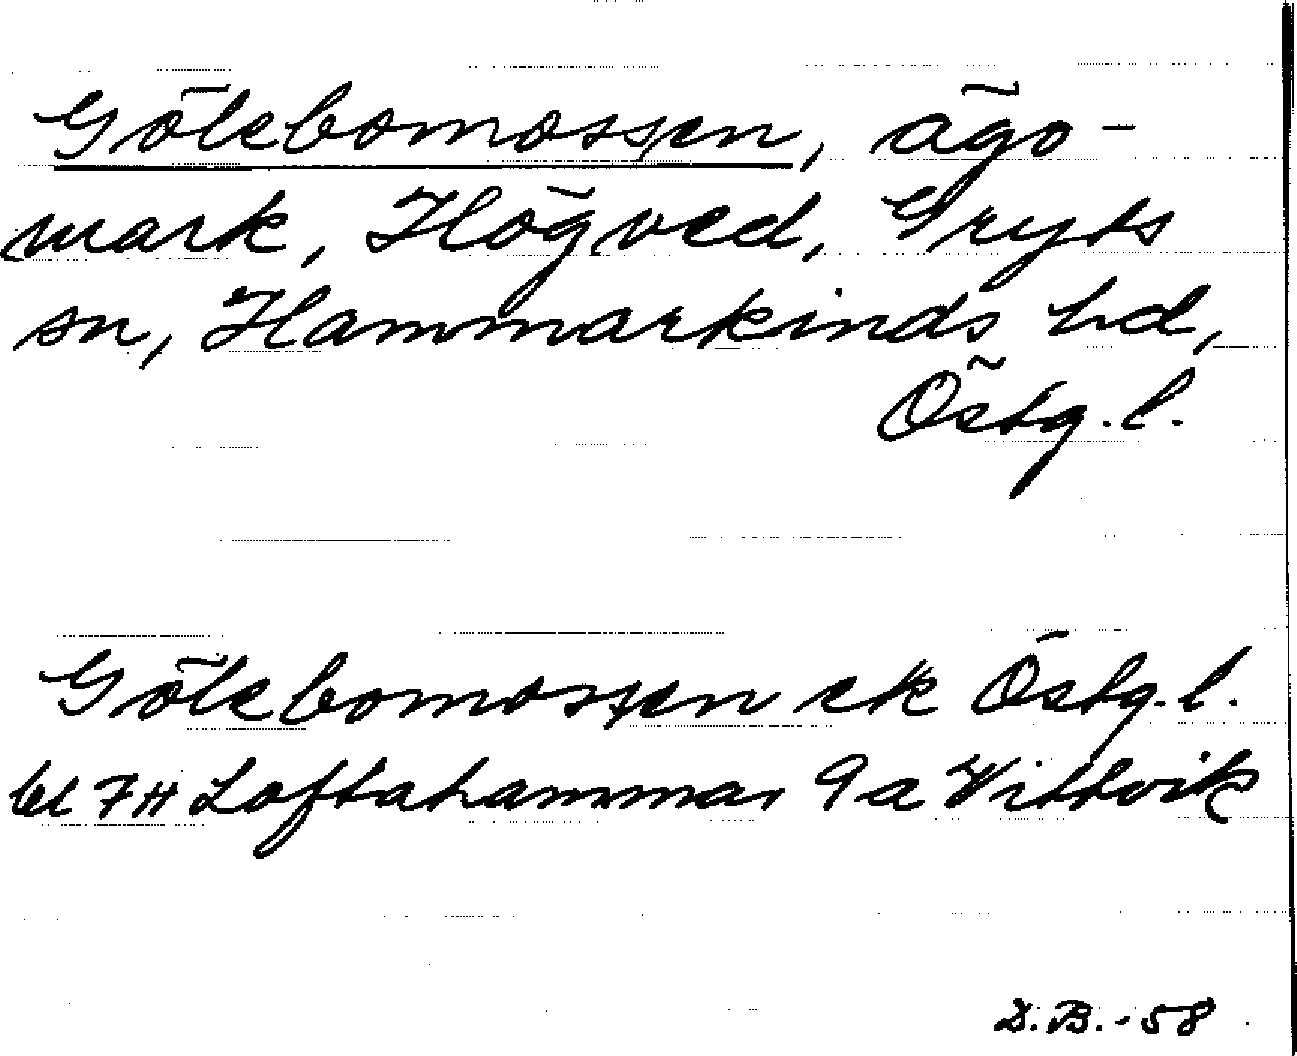 Götebomossen, ägo-
mark, Högved, Gryts
sn, Hammarkinds hd,
Östg.l.
Götebomossen ek Östg.l.
bl 7H Loftahammar 9a Vittvik
D.B.-58